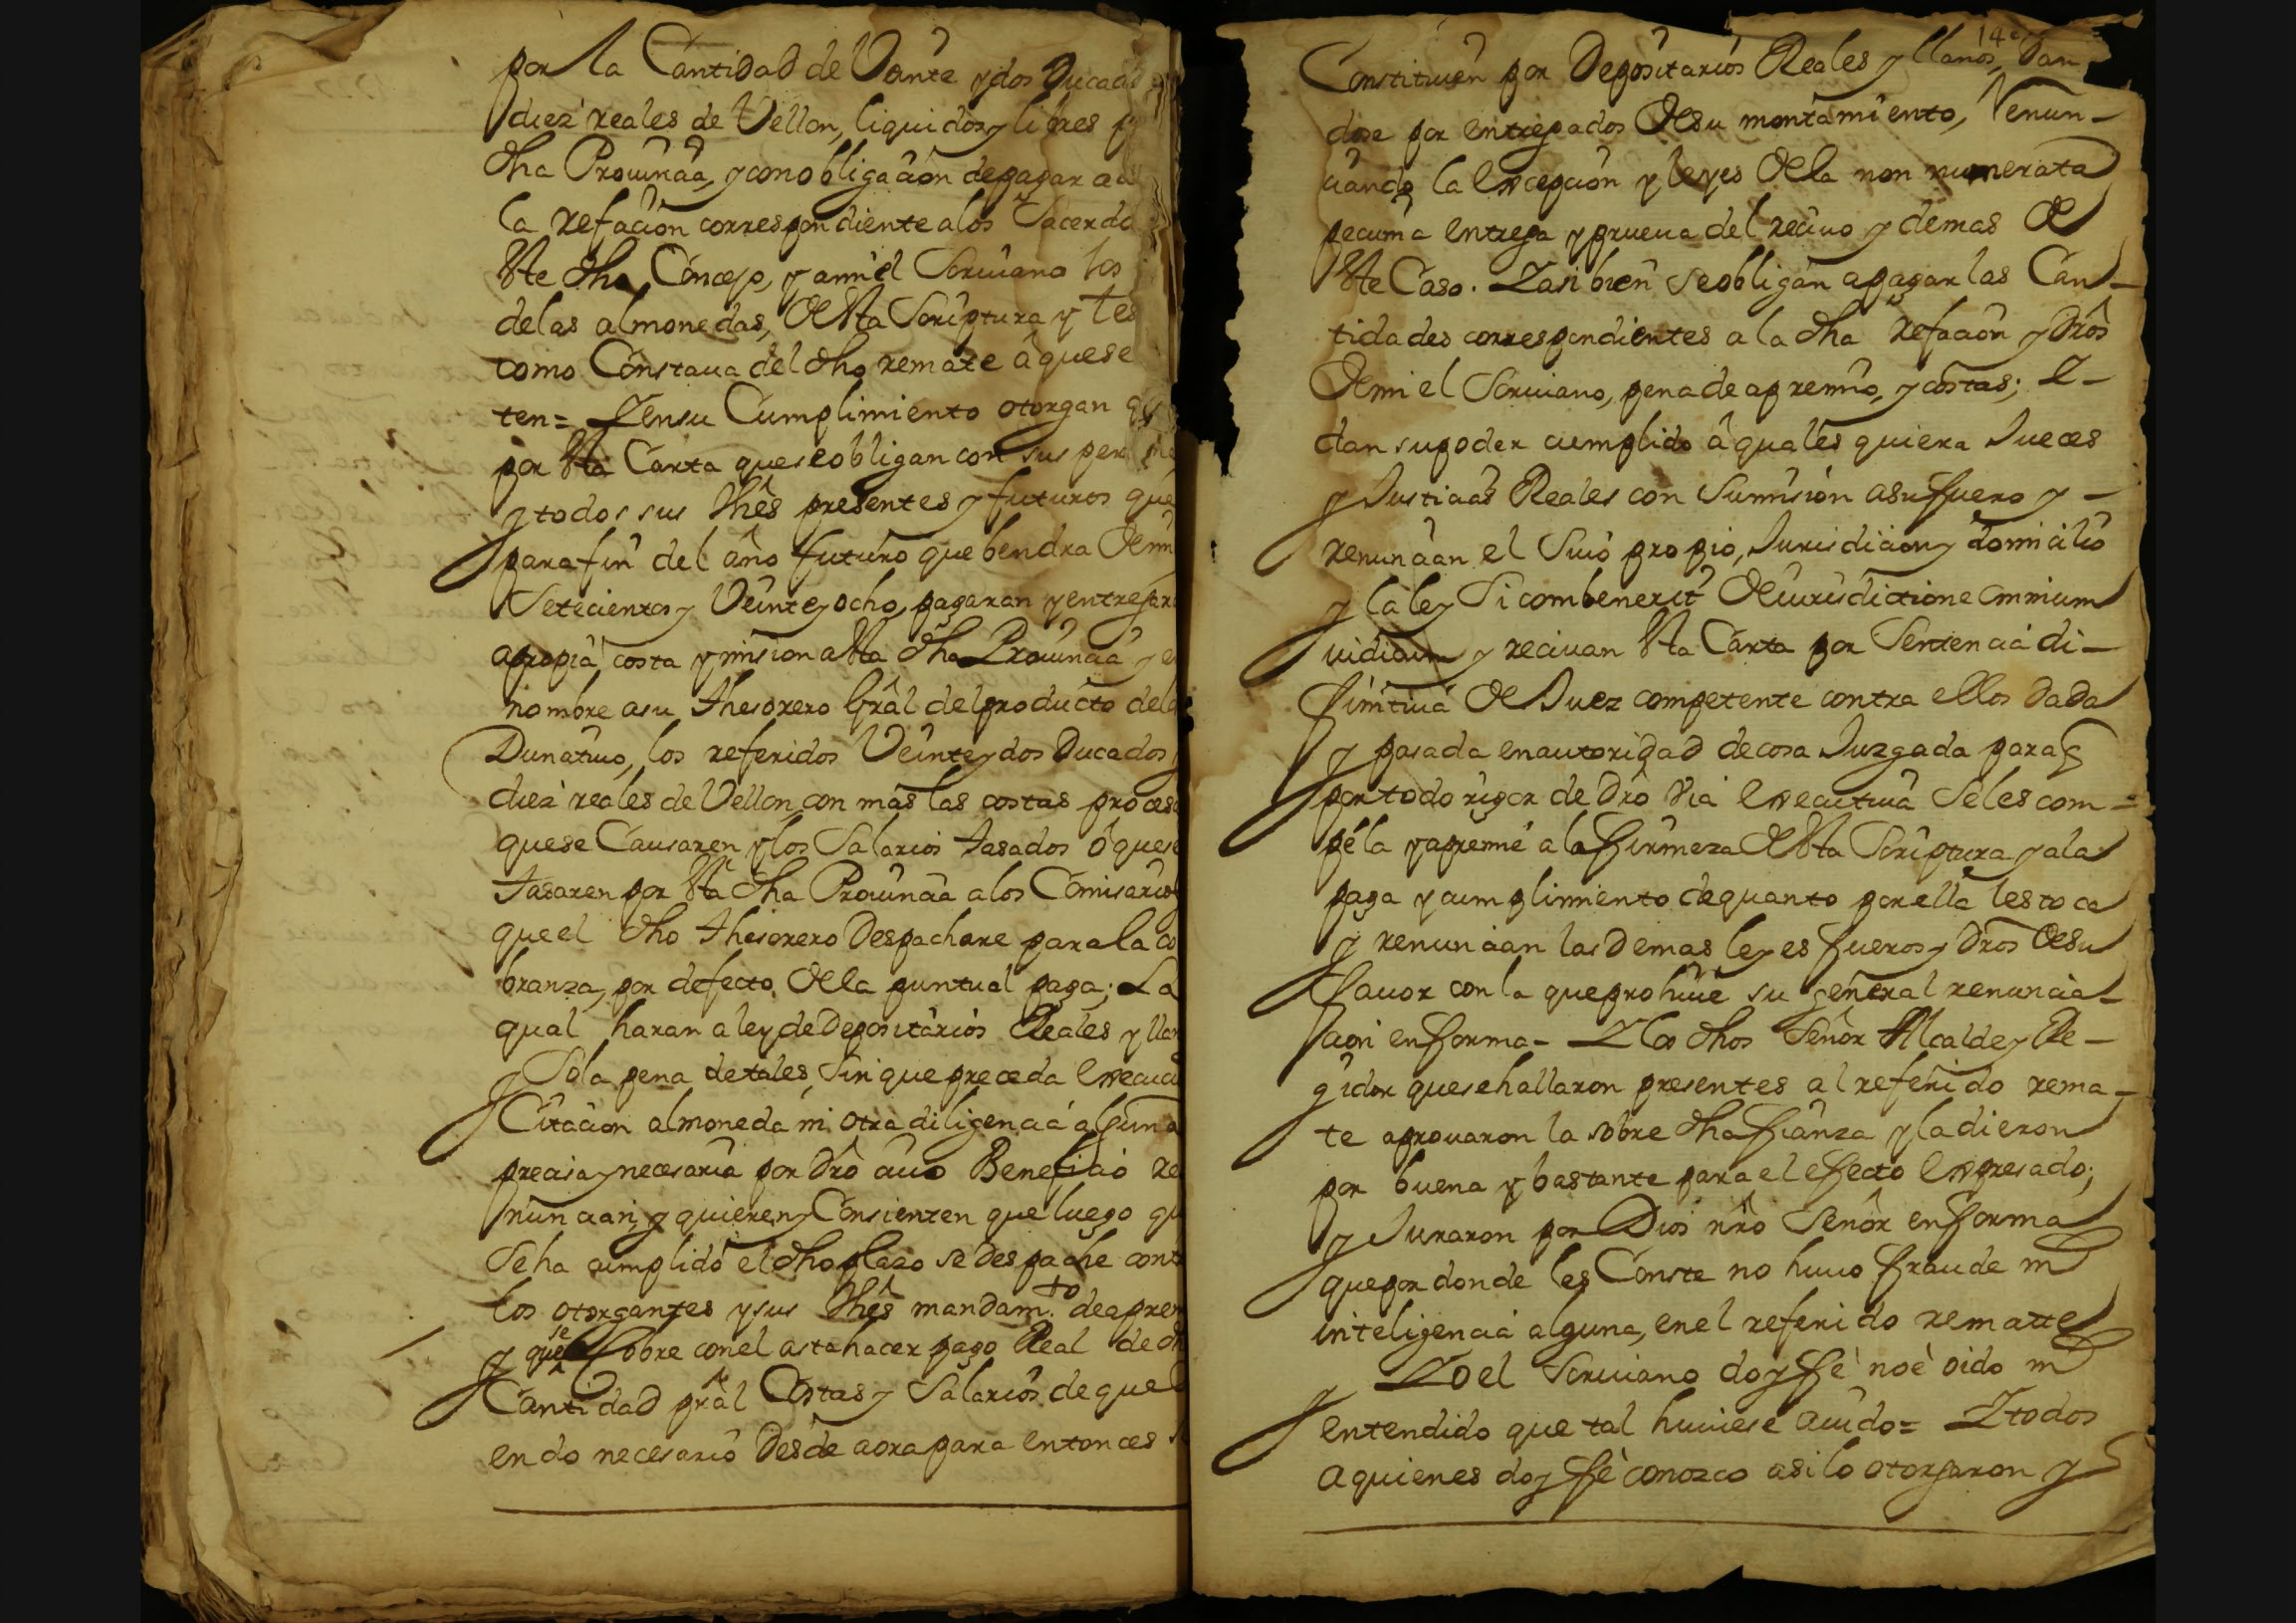 por la Cantidad de Veinte y dos Ducad
diez reales de Vellon, liquidos y libres p
dha Prouincia, y con obligacion de pagar a
la refacion correspondiente a los Sacerdo
deste dho Concejo, y a mi el Scriuano los
de las almonedas, desta Scriptura y tes
como Constaua del dho remate â que se
ten= Y en su Cumplimiento otorgan q
por esta Carta que se obligan con sus per
y todos sus vnês presentes y futuros que
para fin del año futuro que bendra de mil
Setecientos y Veinte y ocho, pagaran y entregara
a propia costa y mision a esta dha Prouincia y e
nombre a su thesorero Grâl del producto del
Dunatiuo, los referidos Veinte y dos Ducados y
diez reales de Vellon, con mas las costas proces
que se Causaren y los Salarios tasados ô que se
tasaren por esta dha Prouincia a los Comisarios
que el dho thesorero Despachare para la co
branza, por defecto de la puntual paga; La
qual haran a ley de Depositarios Reales y llan
y Sola pena de tales, sin que preceda execuci
Citacion almoneda ni otra diligencia alguna
precisa y necesaria por drô cuio Beneficio re
nuncian, y quieren y Consienten que luego qu
Se ha cumplido el dho plazo se Despache cont
los otorgantes y sus vnês mandam.to de aprem
y que se Cobre con el asta hacer pago Real de dh
Cantidad prâl Costas y Salarios de que
endo necesario Desde aora para entonces s
14
Constituien por Depositarios Reales y llanos, Dan
dose por entregados de su montamiento, Renun-
ciando la excepcion y leyes de la non numerata
pecunia entrega y prueua del reciuo y demas de
este Caso. Y asi bien se obligan a pagar las Can-
tidades correspondientes a la dha refacion y drôs
de mi el Scriuano, pena de apremio, y costas; Y-
dan su poder cumplido â quales quiera Jueces
y Justicias Reales con Sumision a su fuero y -
renuncian el Suio propio, Jurisdicion y domicilio
y la ley Si combenerit de iurisdictione omnium
iudicum y reciuan esta Carta por Sentencia di-
finitiua de Juez competente contra ellos dada
y pasada en autoridad de cosa Juzgada para q
por todo rigor de drô via executiua se les com=
pela y apremie a la firmeza desta Scriptura y a la
paga y cumplimiento de quanto por ella les toca
y renuncian las demas leyes fueros y drôs de su
fauor con la que prohiue su general renuncia-
cion en forma- Y los dhos Señor Alcalde y Re-
gidor que se hallaron presentes al referido rema-
te aprouaron la sobre dha fianza y la dieron
por buena y bastante para el efecto expresado;
y Juraron por Dios nrô Señor en forma
que por donde les Conste no huuo fraude ni
inteligencia alguna, en el referido rematte
y Yo el Scriuano doy fè no è oido ni
entendido que tal huuiese auido= Y todos
a quienes doy fè conozco asi lo otorgaron y